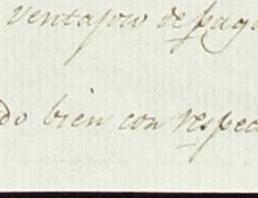 ventajoso de pag
do bien con respec